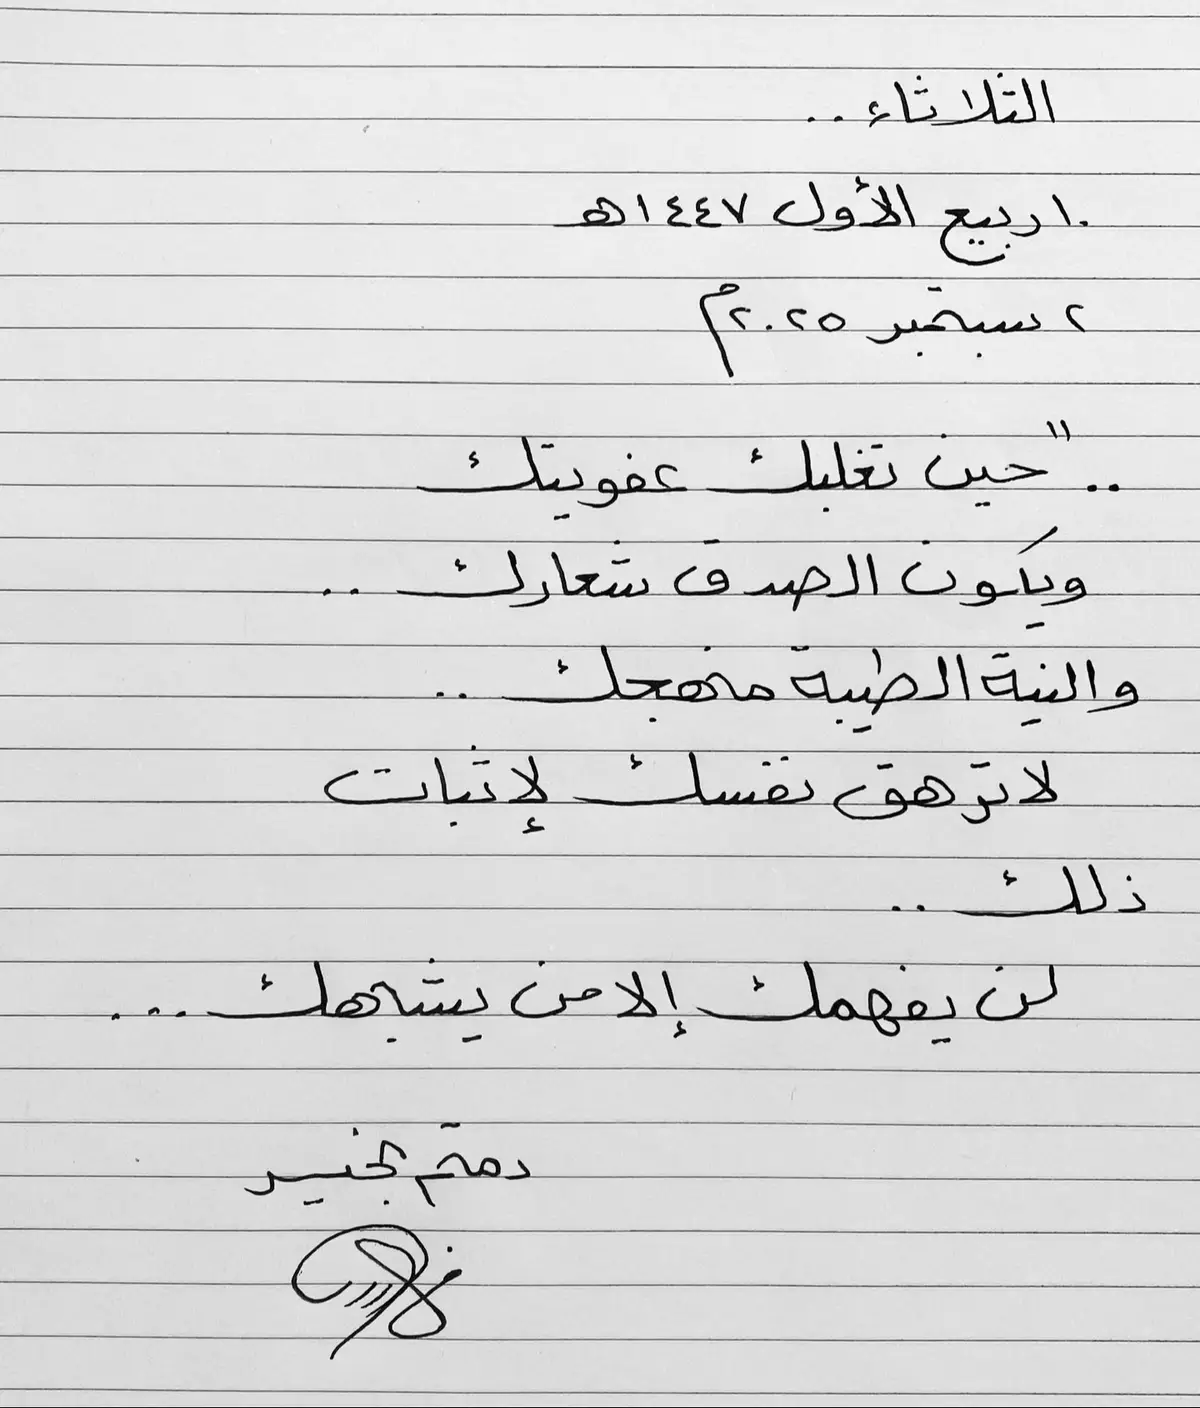 الثلاثاء ..
١٠ ربيع الأول ١٤٤٧هـ
٢ سبتمبر ٢٠٢٥م
.. "حين تغلبك عفويتك
ويكون الصدق شعارك ..
والنية الطيبة منهجك ..
لا ترهق نفسك لإثبات
ذلك ..
لن يفهمك إلا من يشبهك ...
دمتم بخير